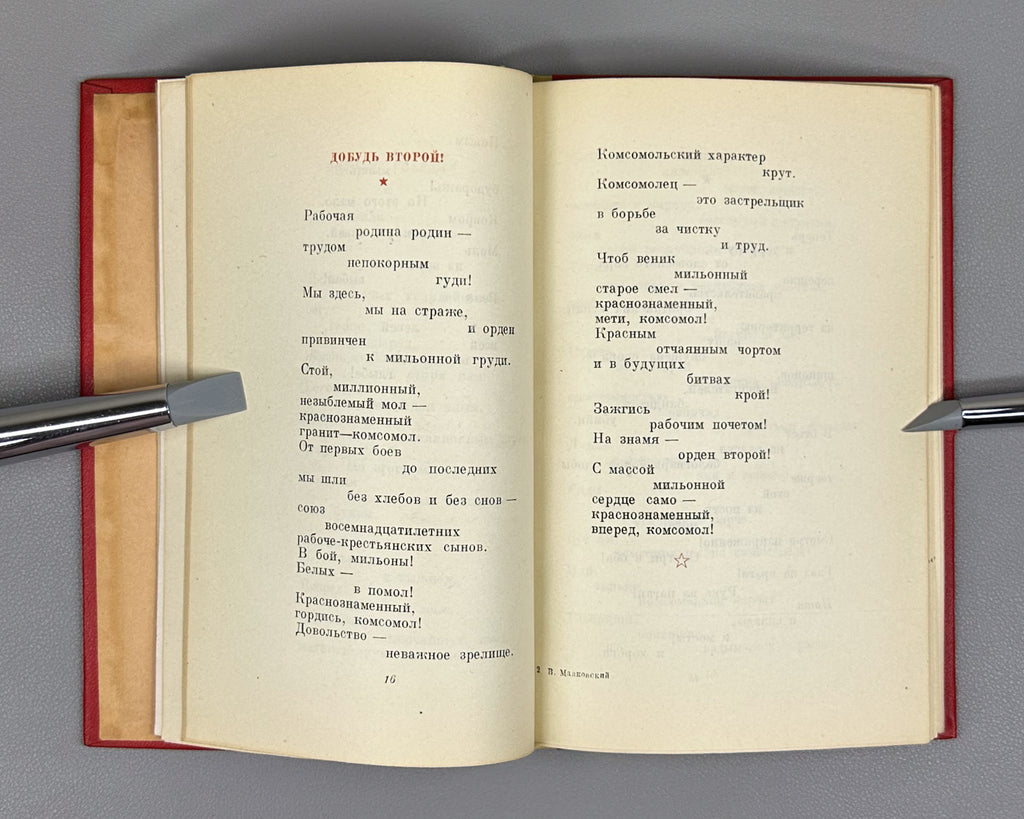 ДОБУДЬ ВТОРОЙ!
Рабочая
родина родин —
трудом
непокорным
гуди!
Мы здесь,
мы на страже,
и орден
привинчен
к мильонной груди.
Стой,
миллионный,
незыблемый мол —
краснознаменный
гранит—комсомол.
От первых боев
до последних
мы шли
без хлебов и без снов —
союз
восемнадцатилетних
рабоче-крестьянских сынов.
В бой, мильоны!
Белых —
в помол!
Краснознаменный,
гордись, комсомол!
Довольство —
неважное зрелище.
16
Комсомольский характер
крут.
Комсомолец —
это застрельщик
в борьбе
за чистку
и труд.
Чтоб веник
мильонный
старое смел —
краснознаменный,
мети, комсомол!
Красным
отчаянным чортом
и в будущих
битвах
крой!
Зажгись
рабочим почетом!
На знамя —
орден второй!
С массой
мильонной
сердце само —
краснознаменный,
вперед, комсомол!
2 В. Маяковский